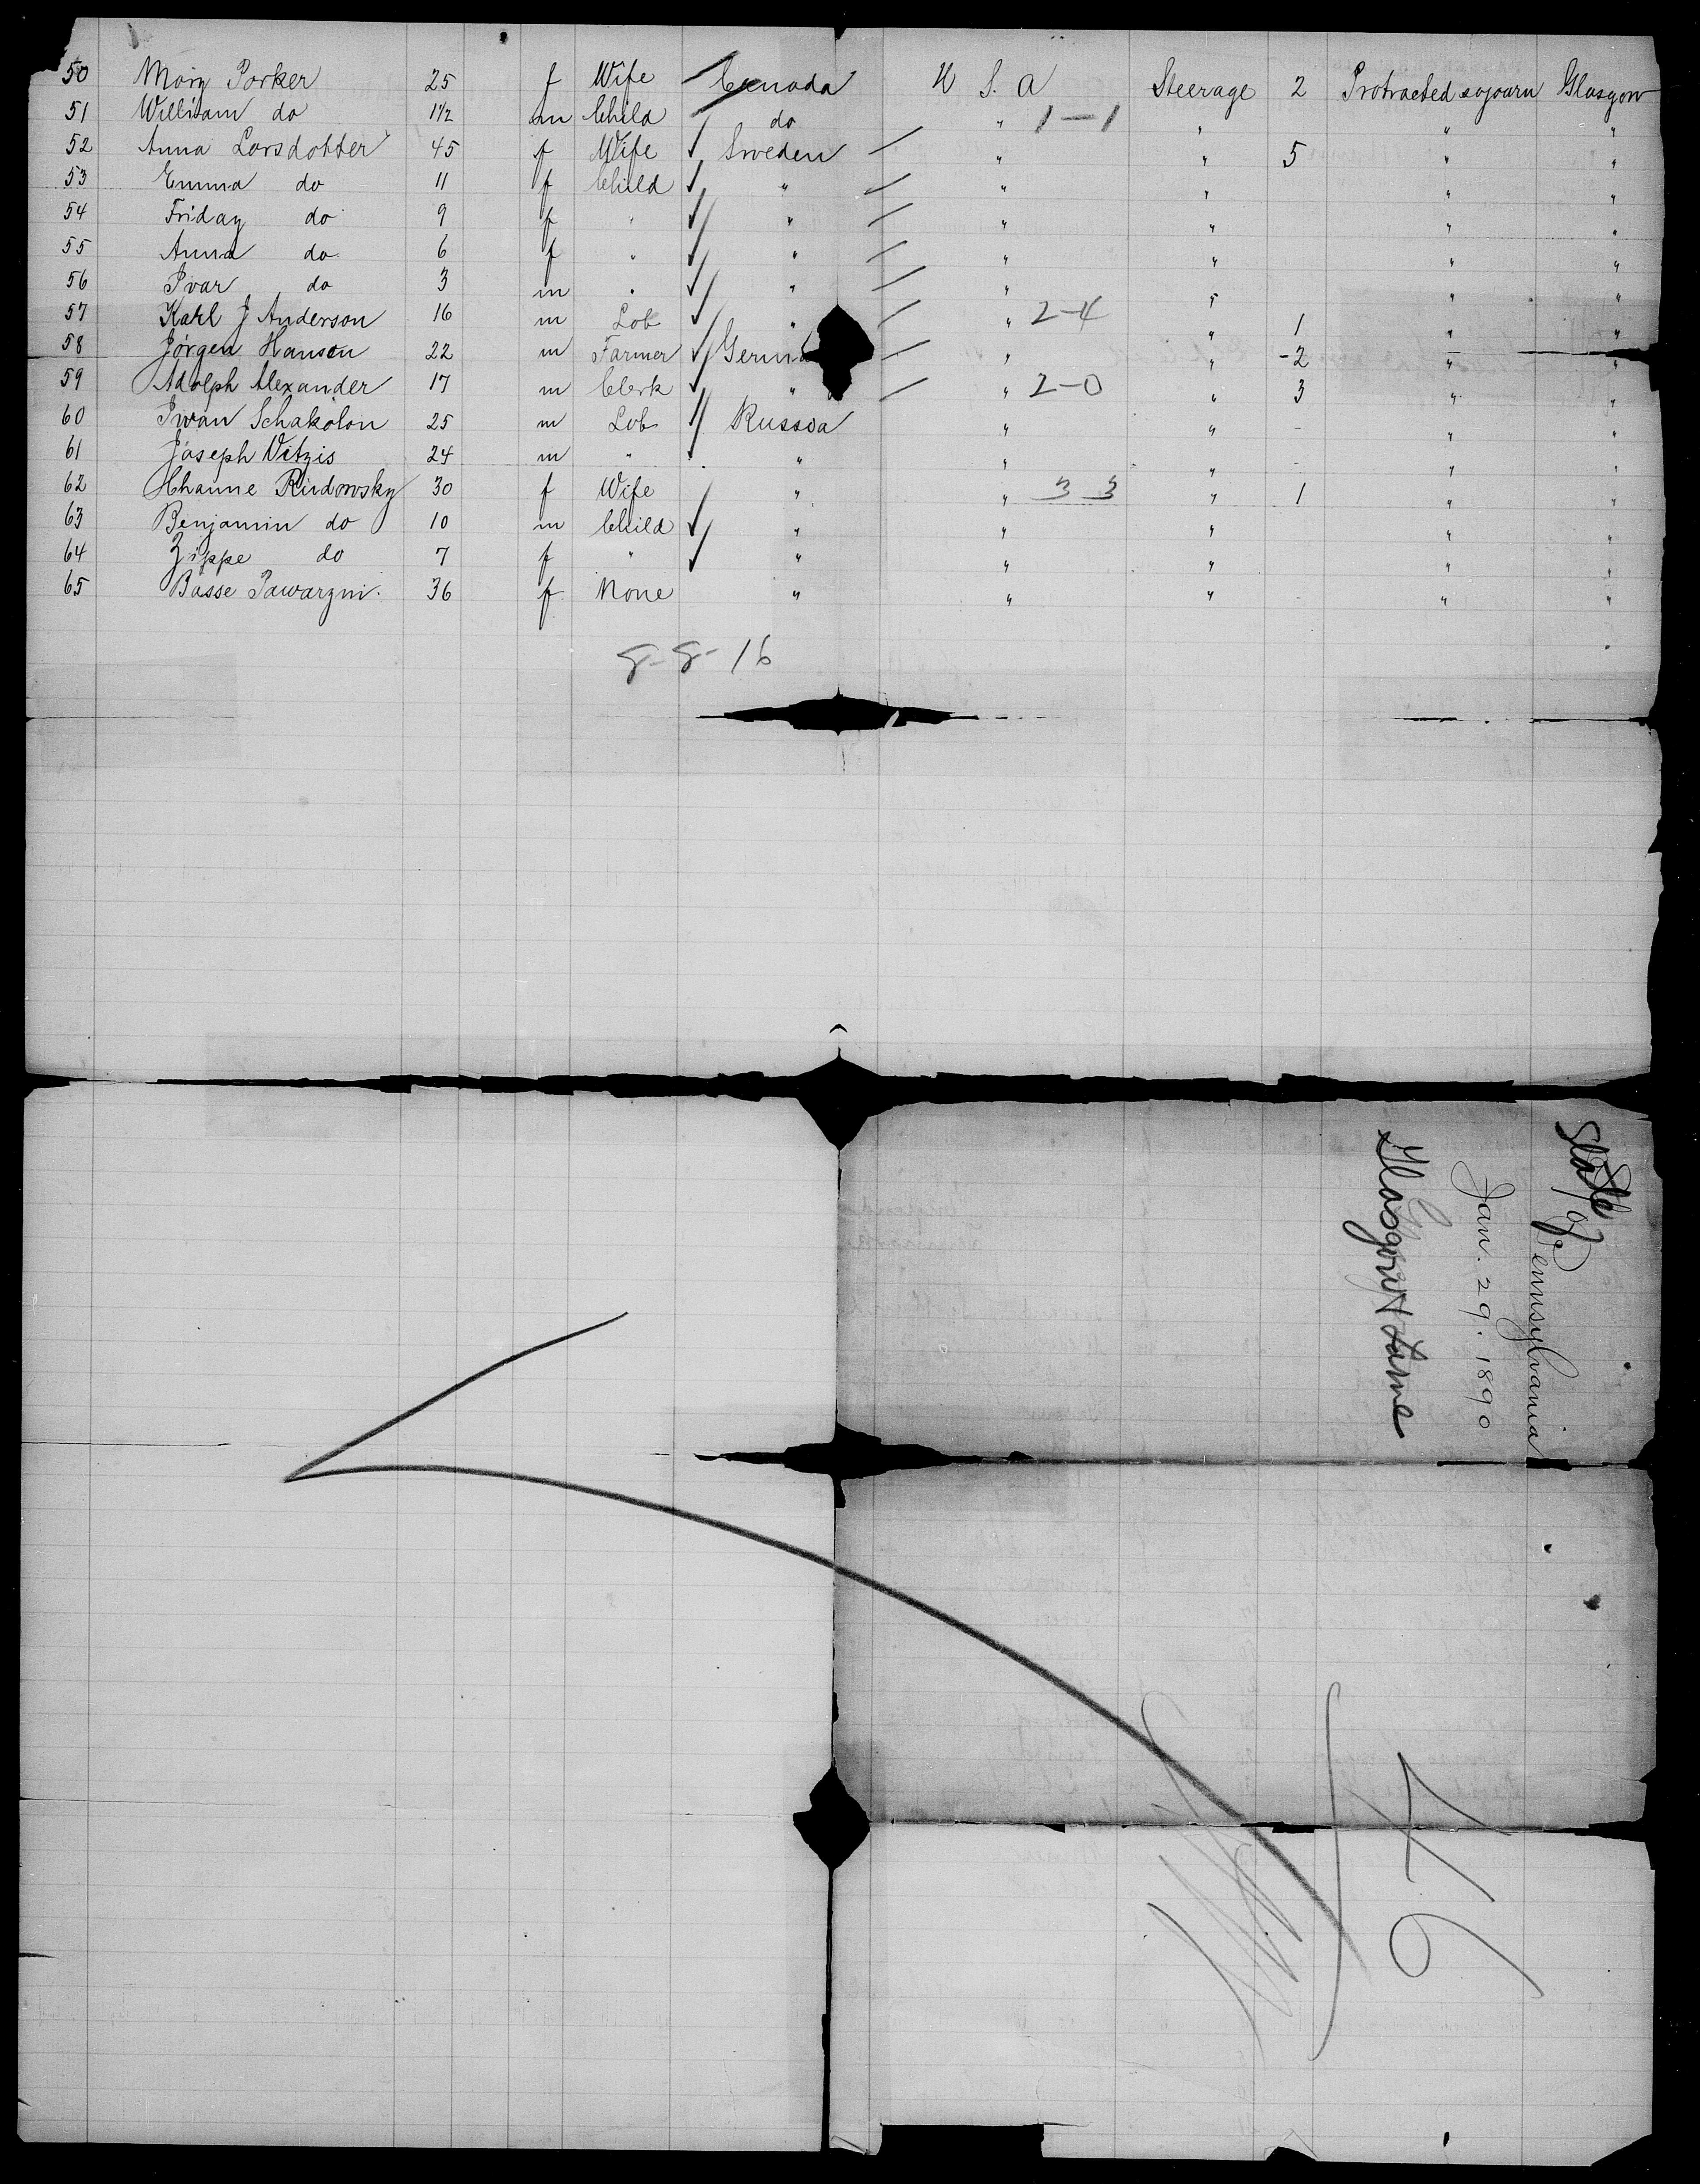 50 Mary Parker 25 f Wife Canada U S. A Steerage 2 Protracted sojourn Glasgow
51 William do 1½ m Child do " 1-1 " " "
52 Anna Larsdotter 45 f Wife Sweden " " 5 " "
53 Emma do 11 f Child " " " " "
54 Friday do 9 f " " " " " "
55 Anna do 6 f " " " " " "
56 Ivar do 3 m " " " " " "
57 Karl J Anderson 16 m Lab " " 2-4 " 1 " "
58 Jörgen Hansen 22 m Farmer Germa " " -2 " "
59 Adolph Alexander 17 m Clerk " " 2-0 " 3 " "
60 Iwan Schakolon 25 m Lab Russia " " - " "
61 Joseph Vitzis 24 m " " " " - " "
62 Channe Rudowsky 30 f Wife " " 3 3 " 1 " "
63 Benjamin do 10 m Child " " " " "
64 Zippe do 7 f " " " " " "
65 Basse Pawargni. 36 f None " " " " "
8-8-16
State of Pennsylvania
Jan. 29. 1890
Glasgow & Larne
46